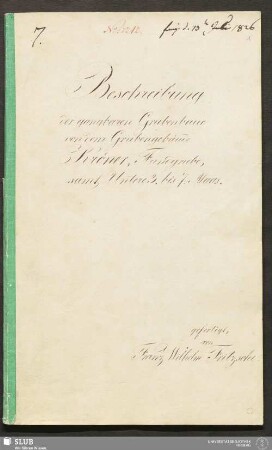 7.
1826
Beschreibung
der gangbaren Grubenbaue
von dem Grubengebäude
Kröner, Fundgrube,
samt Untere 3. bis 7. Maas.
gefertigt
von
Franz Wilhelm Fritzsche
SLUB
Wir führen Wissen.